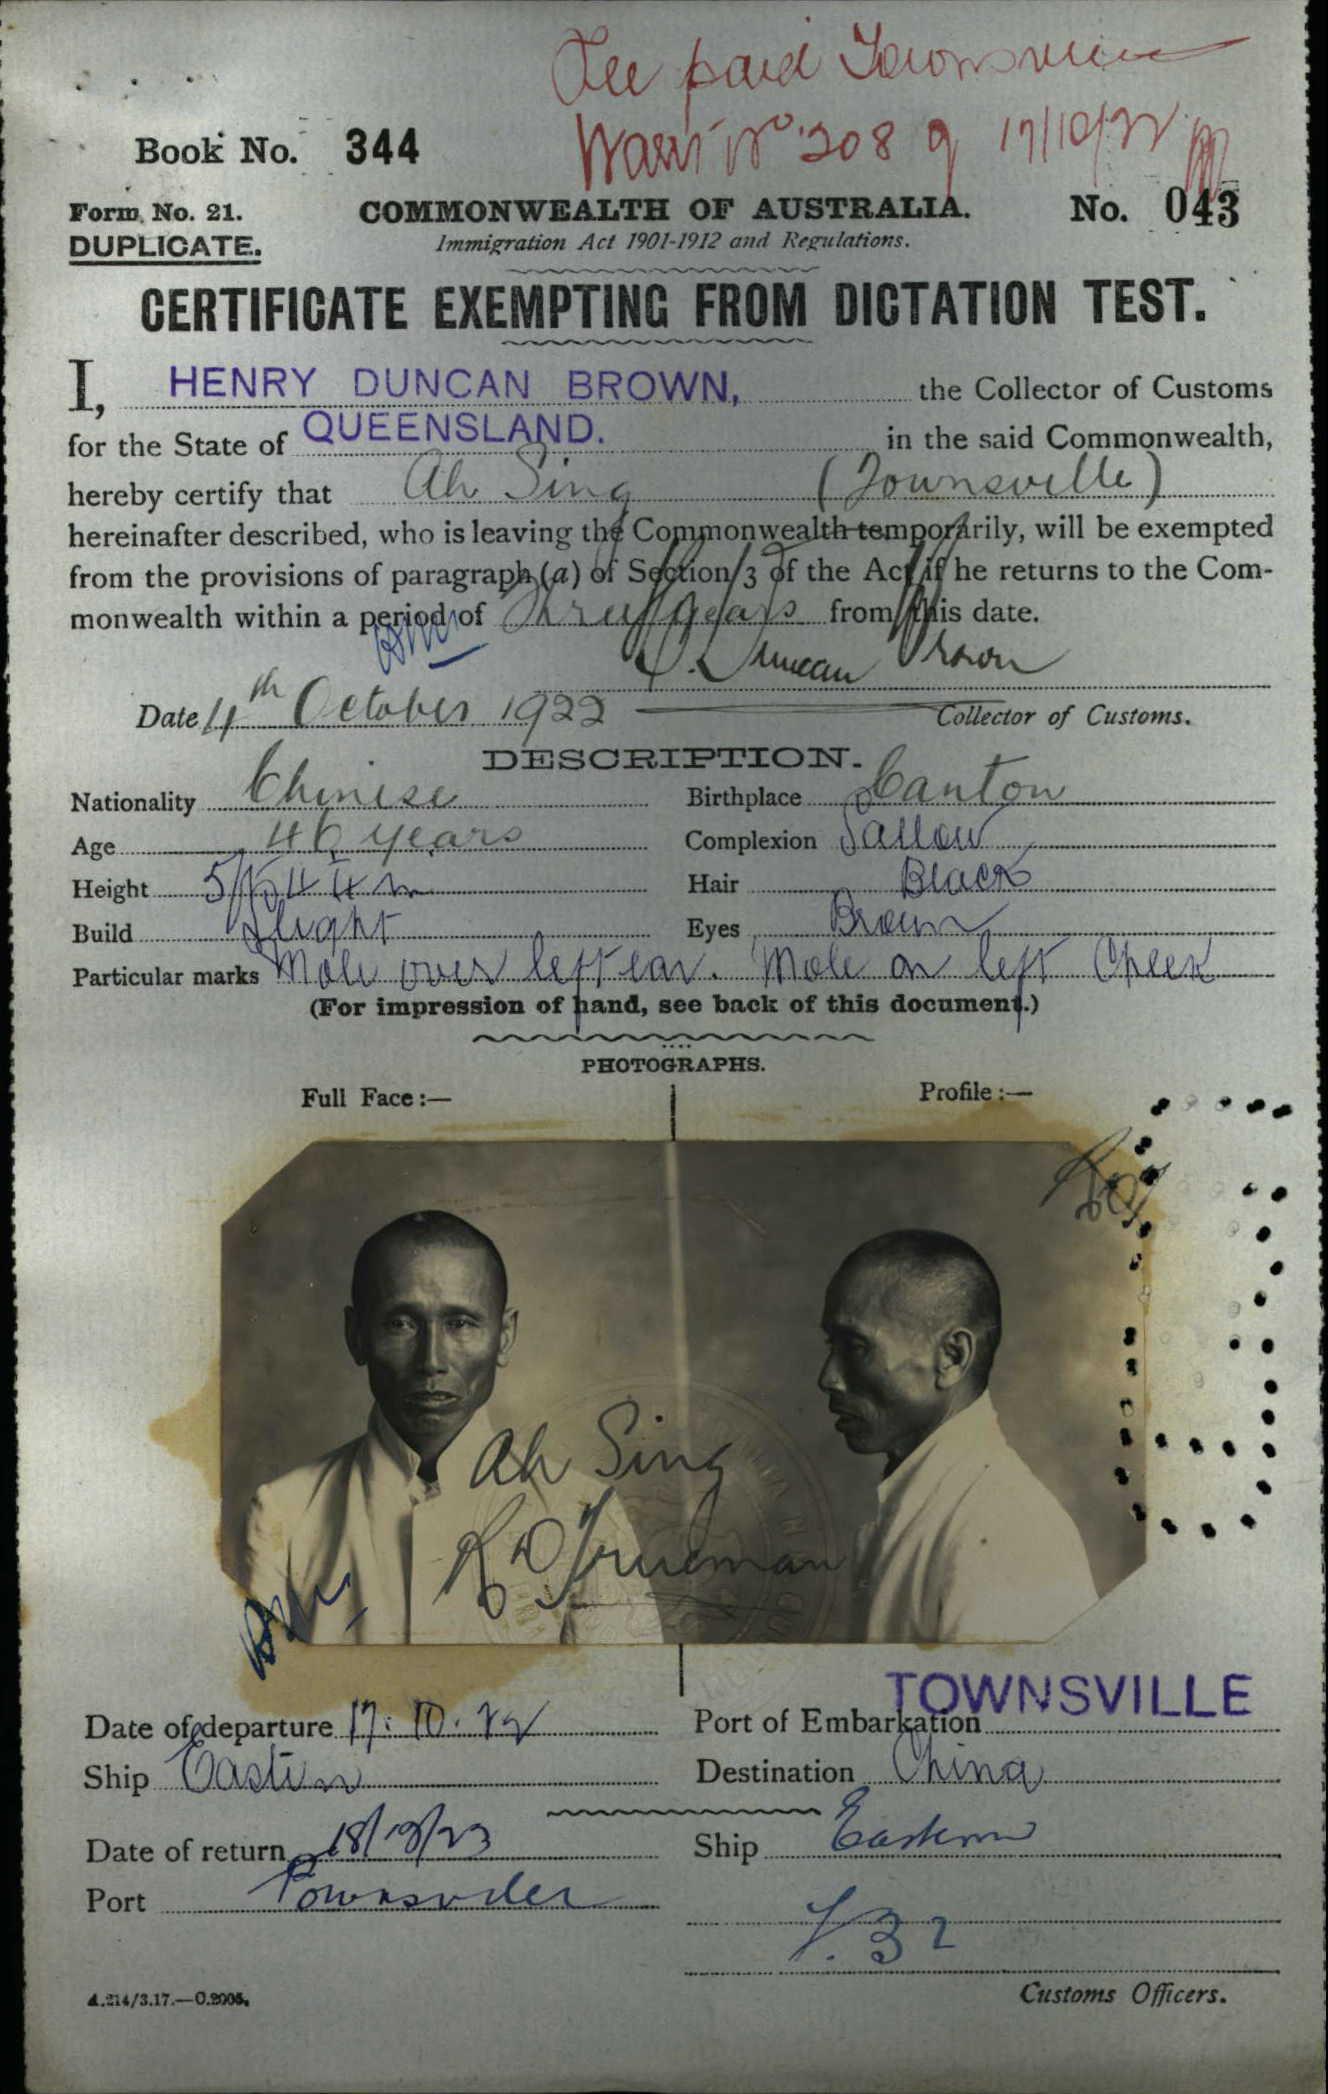 Fee paid Townsville
Warrt No 208 g 17/10/22
Book No. 344
Form No. 21.
COMMONWEALTH OF AUSTRALIA.
No. 043
DUPLICATE.
Immigration Act 1901-1912 and Regulations.
CERTIFICATE EXEMPTING FROM DICTATION TEST.
I, HENRY DUNCAN BROWN, the Collector of Customs
for the State of QUEENSLAND. in the said Commonwealth,
hereby certify that Ah Sing (Townsville)
hereinafter described, who is leaving the Commonwealth temporarily, will be exempted
from the provisions of paragraph (a) of Section 3 of the Act if he returns to the Com-
monwealth within a period of Three years from this date.
H. Duncan Brown
Date 4th October 1922
Collector of Customs.
DESCRIPTION.
Nationality Chinese Birthplace Canton
Age 46 years Complexion Sallow
Height 5 ft 4 1/4 in Hair Black
Build Slight Eyes Brown
Particular marks Mole over left ear. Mole on left Cheek
(For impression of hand, see back of this document.)
PHOTOGRAPHS.
Full Face :— Profile :—
Ah Sing
R D Trueman
TOWNSVILLE
Date of departure 17. 10. 22 Port of Embarkation
Ship Eastern Destination China
Date of return 18/10/23 Ship Eastern
Port Townsville
A.214/3.17.—C.2005.
Customs Officers.